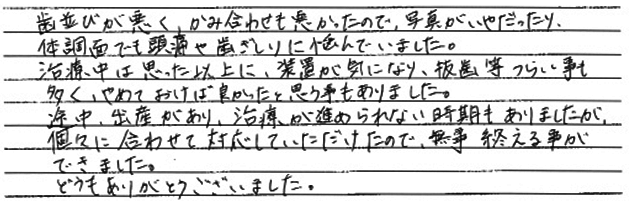 歯並びが悪く、かみ合わせも悪かったので、写真がいやだったり、
体調面でも頭痛や歯ぎしりに悩んでいました。
治療中は思った以上に、装置が気になり、抜歯等つらい事も
多く、やめておけば良かったと思う事もありました。
途中、出産があり、治療が進められない時期もありましたが、
個々に合わせて対応していただけたので、無事終える事が
できました。
どうもありがとうございました。